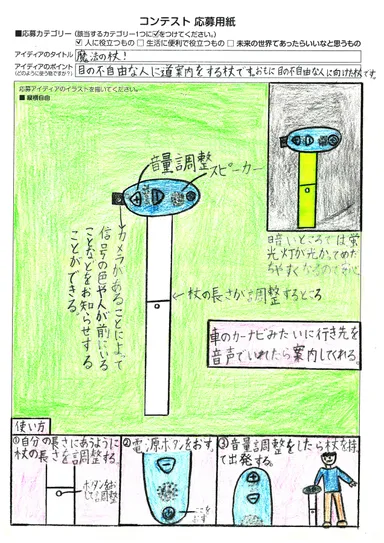 コンテスト 応募用紙
■応募カテゴリー(該当するカテゴリー1つに☑をつけてください。)
☑ 人に役立つもの □ 生活に便利で役立つもの □ 未来の世界であったらいいなと思うもの
アイディアのタイトル 魔法の杖!
アイディアのポイント
(どのように使う物ですか?) 目の不自由な人に道案内をする杖です。おもに目の不自由な人に向けた杖です。
応募アイディアのイラストを描いてください。
■ 縦横自由
音量調整
スピーカー
カメラがあることによって
信号の色や人が前にいる
ことなどをお知らせする
ことができる。
暗いところでは蛍
光灯が光かってめだ
ちやすくなるので安心
←杖の長さが調整するところ
車のカーナビみたいに行き先を
音声でいれたら案内してくれる。
使い方
①自分の長さにあうように
杖の長さを調整する。
ボタンをお
して調整
②電源ボタンをおす。
ここを
おす
③音量調整をしたら杖を持っ
て出発する。